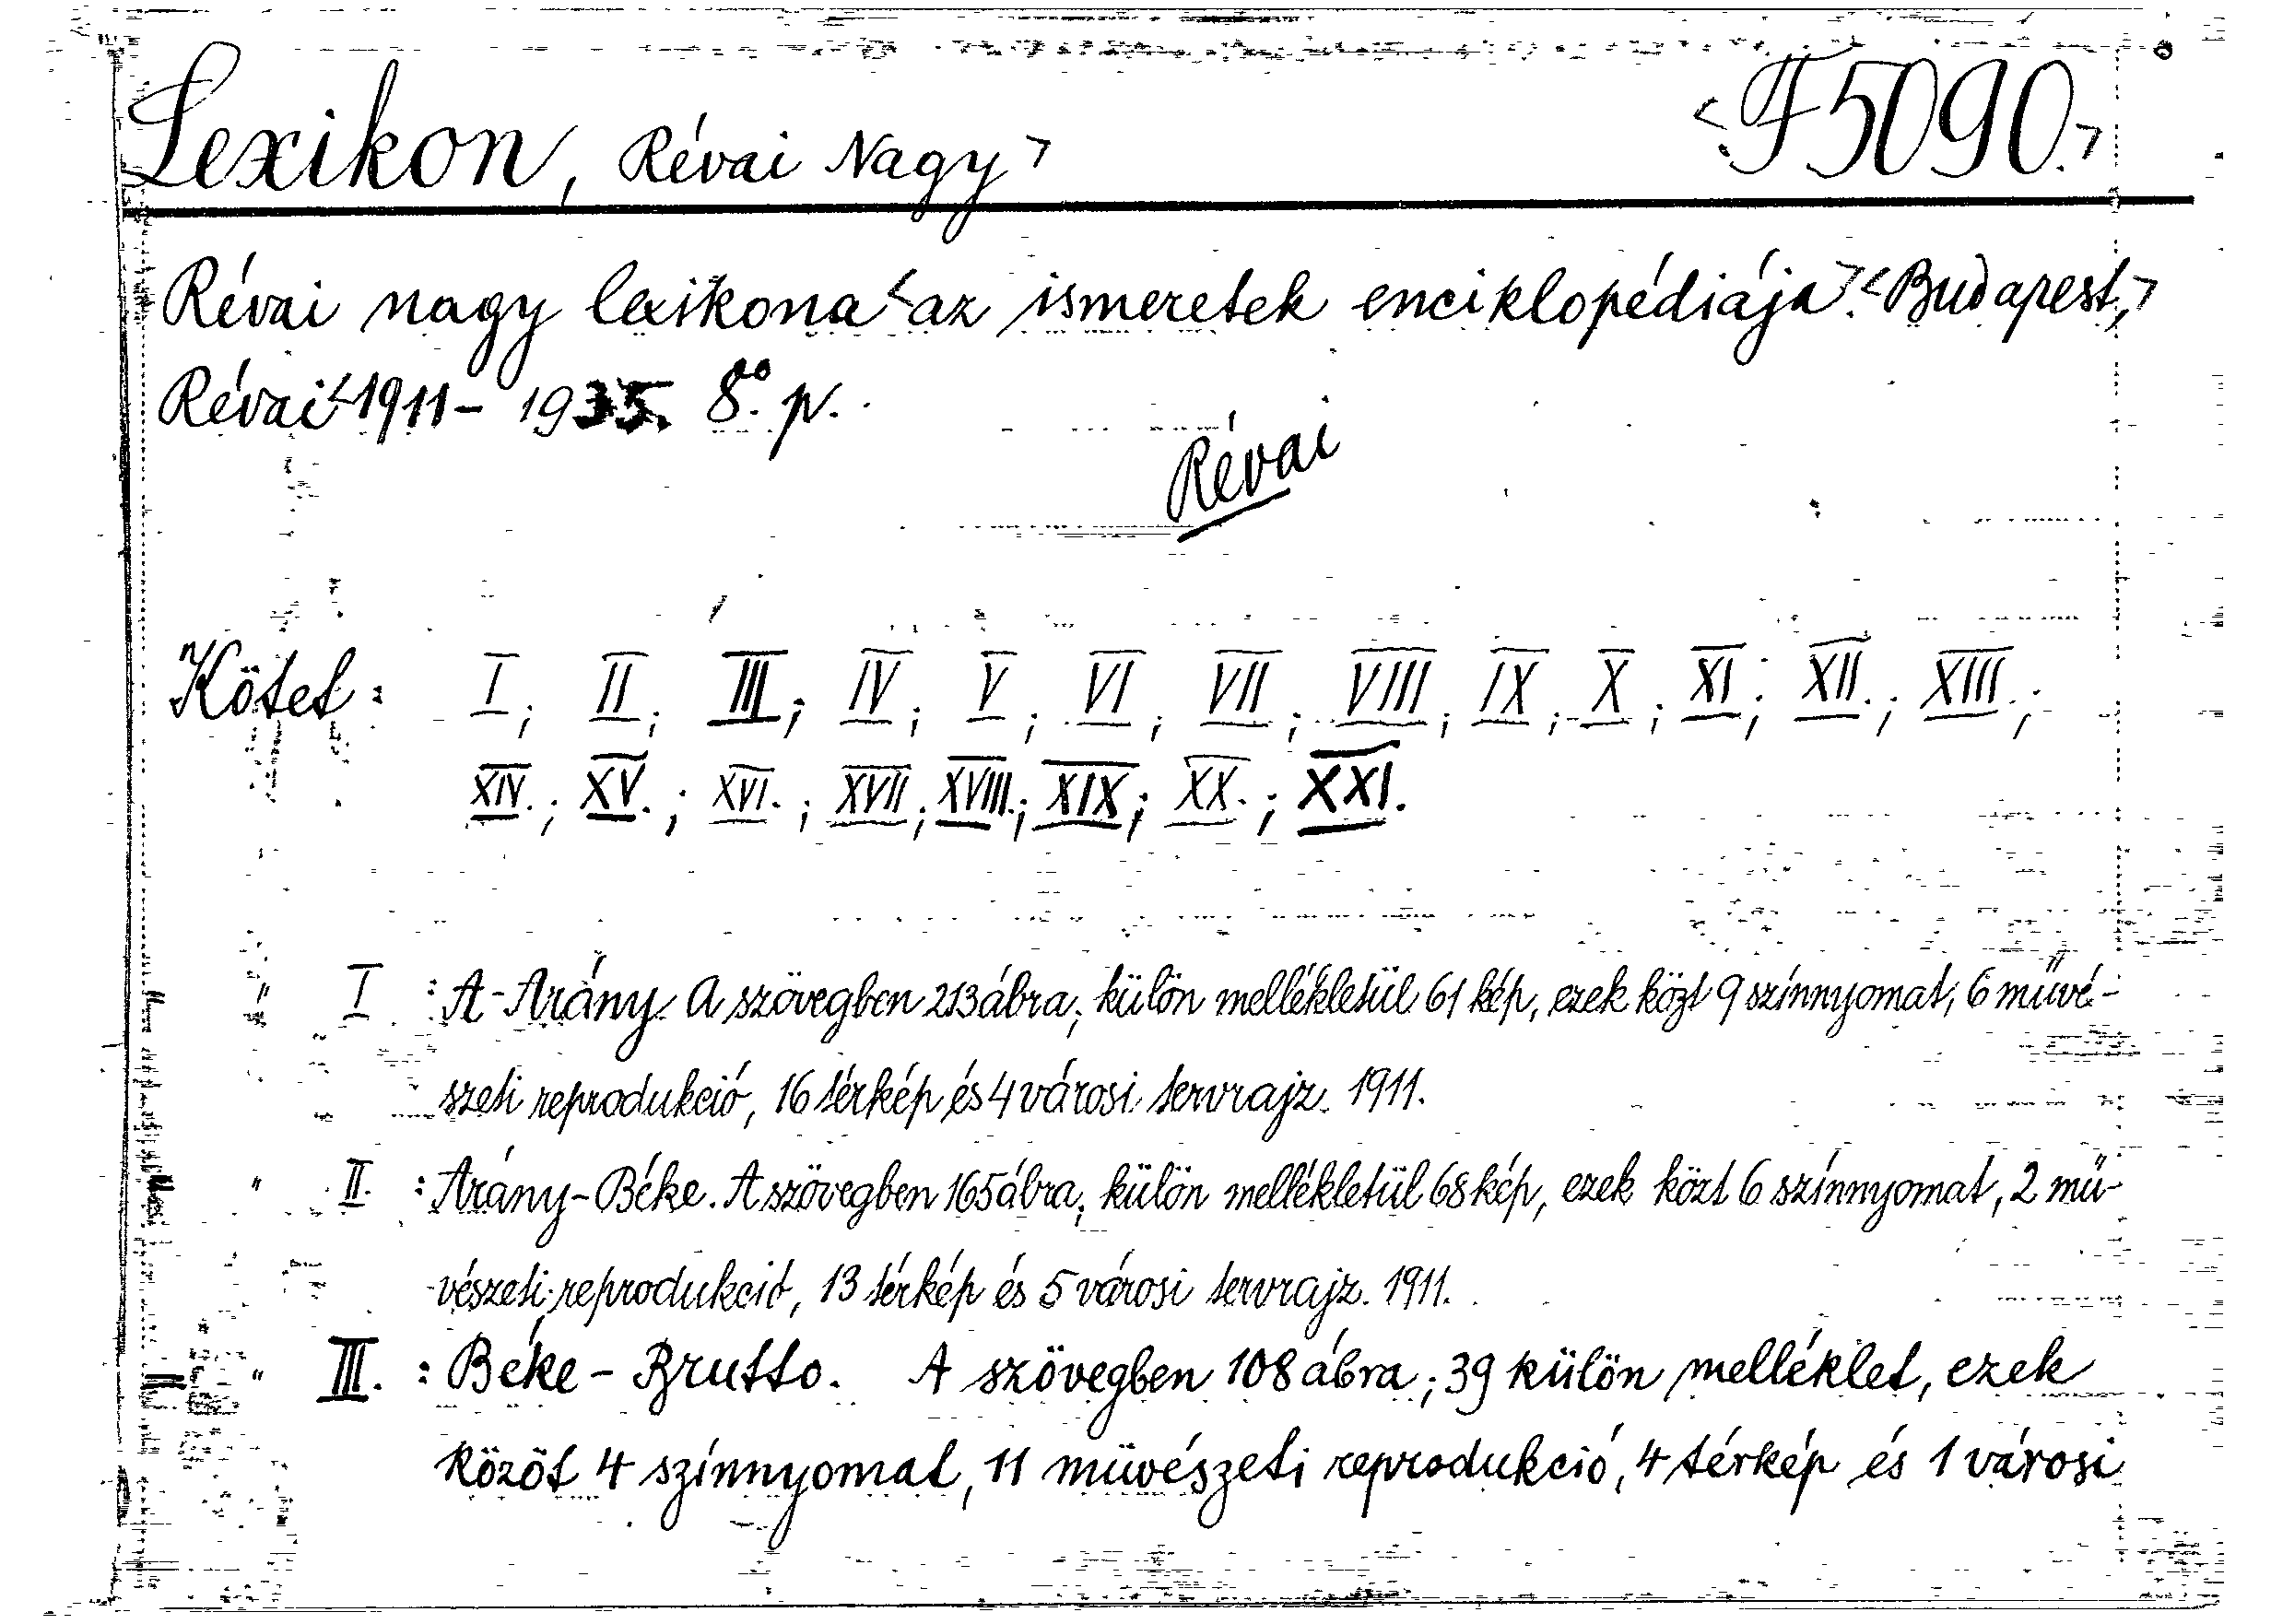 Lexikon, Révai Nagy > <F 5090.>
Révai nagy lexikona < az ismeretek enciklopédiája >. < Budapest, >
Révai < 1911- 1935. 8° p.
Révai
Kötet: I; II; III; IV; V; VI; VII; VIII; IX; X; XI; XII.; XIII.;
XIV.; XV.; XVI.; XVII; XVIII.; XIX; XX.; XXI.
" I : A-Arány. A szövegben 213 ábra, külön mellékletül 61 kép, ezek közt 9 színnyomat, 6 művé-
szeti reprodukció, 16 térkép és 4 városi tervrajz. 1911.
" II. : Arány-Béke. A szövegben 165 ábra, külön mellékletül 68 kép, ezek közt 6 színnyomat, 2 mű-
vészeti reprodukció, 13 térkép és 5 városi tervrajz. 1911.
" III. : Béke - Brutto. A szövegben 108 ábra; 39 külön melléklet, ezek
között 4 színnyomat, 11 művészeti reprodukció, 4 térkép és 1 városi